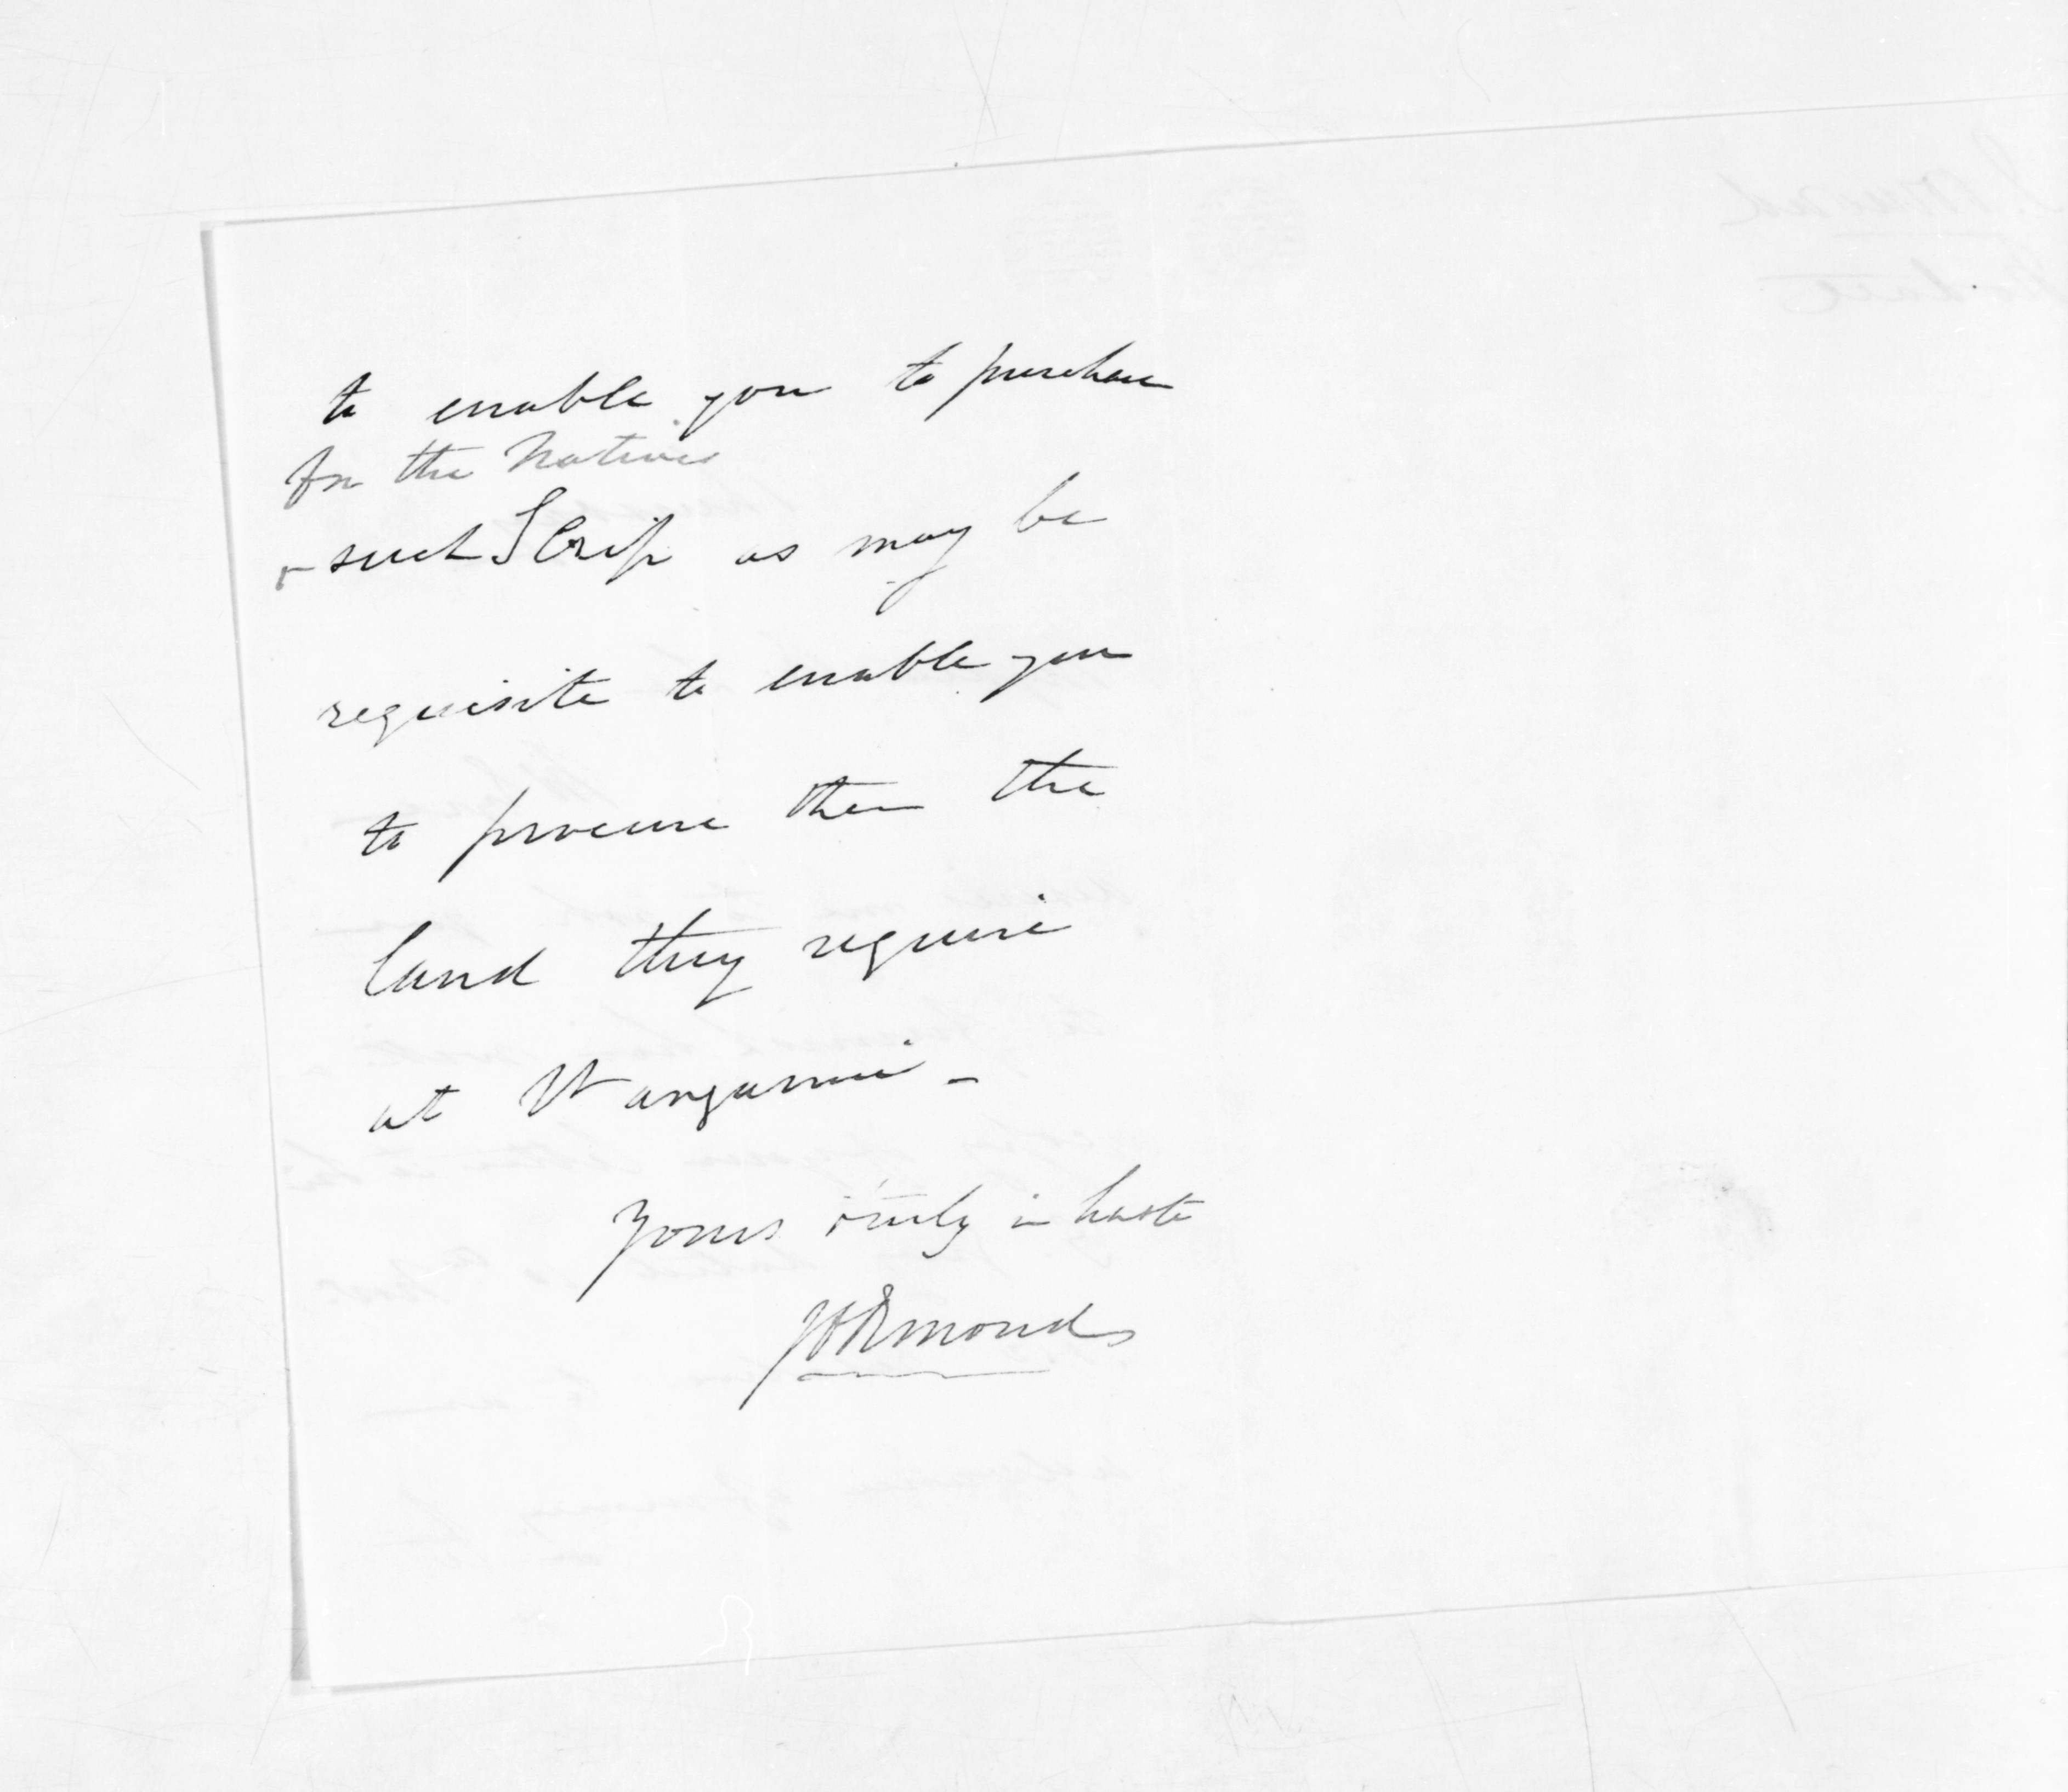 to enable you to purchase
for the Natives
such Scrip as may be
requisite to enable you
to procure them the
land they require
at Wanganui -
Yours truly in haste